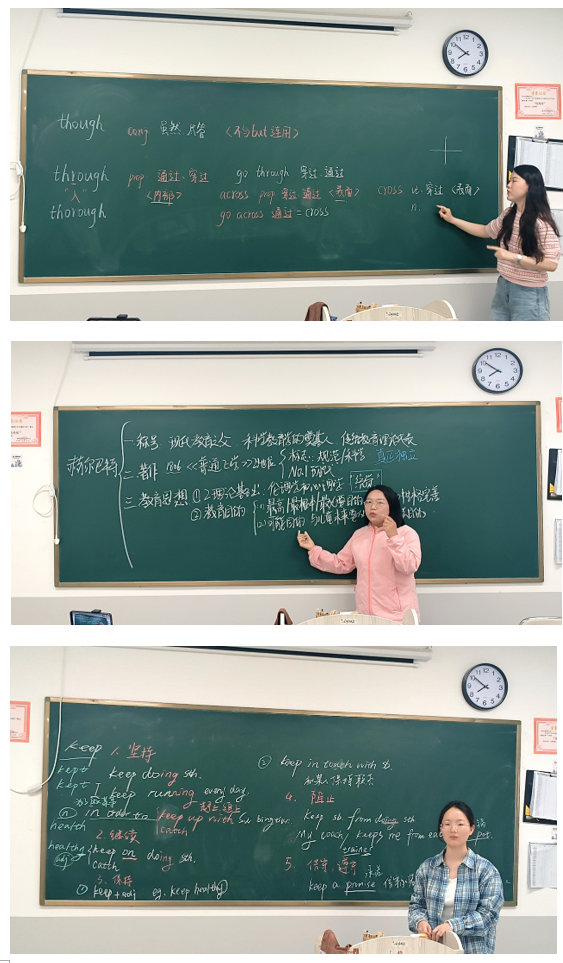 though conj 虽然 尽管 <不与but连用>
through prep 通过、穿过 go through 穿过、通过
"入" <内部> across prep 穿过、通过 <表面> cross vt. 穿过 <表面>
thorough go across 通过 = cross n.
赫尔巴特
一.称号 现代教育之父 科学教育学的奠基人 传统教育理论代表
二.著作 1806 <<普通教育学>>
标志: 规范 教育学 真正独立
No.1
三.教育思想 ① 2理论基础: 伦理学和心理学
② 教育目的
可能目的 与儿童未来
keep 1. 坚持
kept keep doing sth.
kept I keep running every day.
为了
(n) in order to keep up with sb
赶上 追上
health catch
2. 继续
healthy keep on doing sth.
adj
catch
3. 保持
① keep + adj eg. keep healthy
② keep in touch with sb.
和某人保持联系
4. 阻止
keep sb from doing sth
My coach keeps me from
5. 保守、遵守
承诺
keep a promise